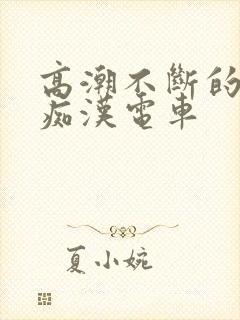 高潮不斷的
痴漢電車
夏小婉